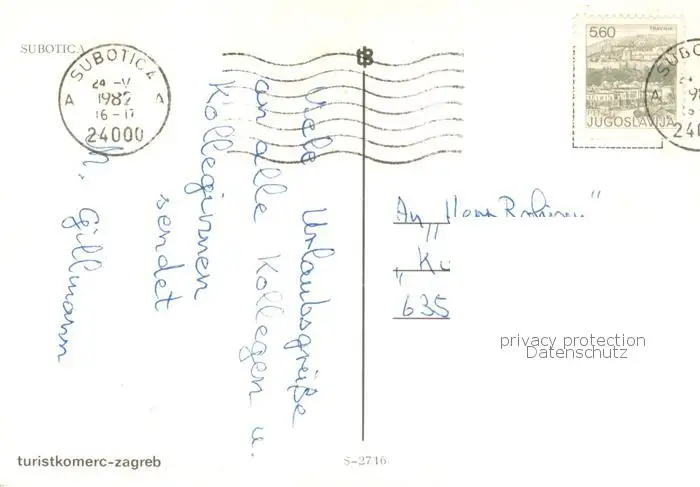 SUBOTICA
SUBOTICA
24 -V
1982
16-17
A A
24000
Viele Urlaubsgrüße
an alle Kollegen u.
Kolleginnen
sendet
Gillmann
5.60
TRAVNIK
JUGOSLAVIJA
SUBO
A
24
An
635
privacy protection
Datenschutz
turistkomerc-zagreb
S-2716